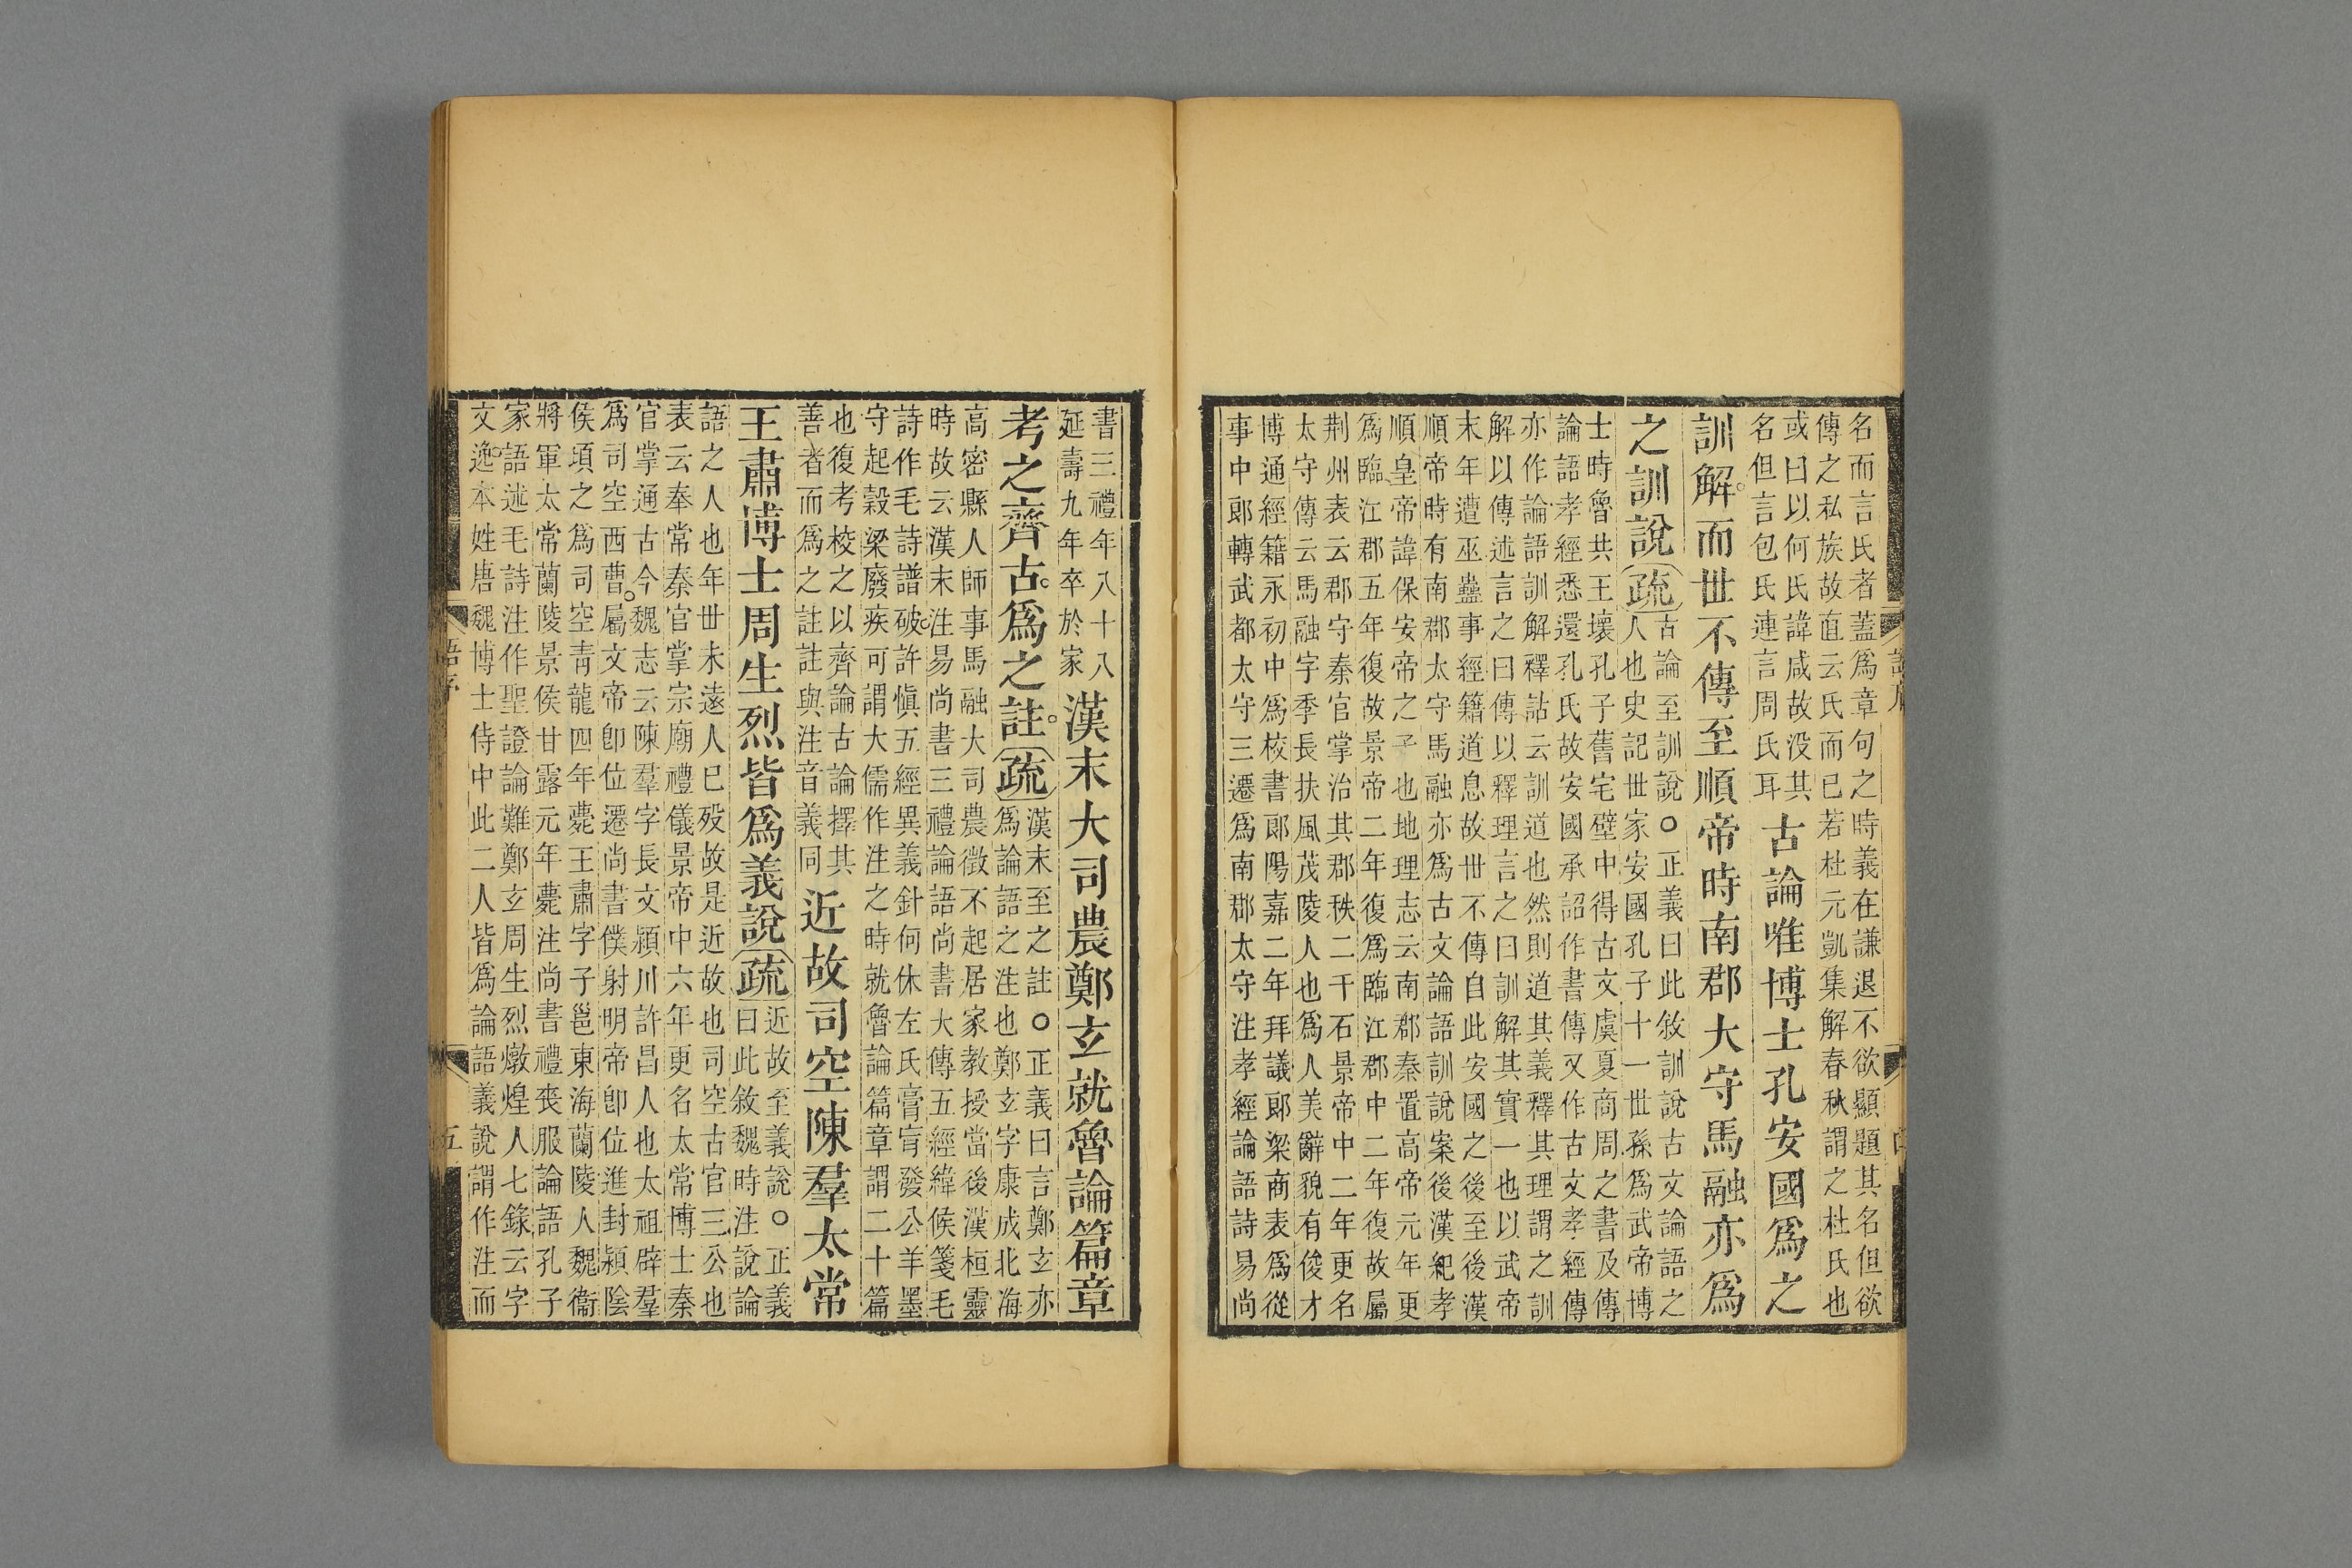 名而言氏者蓋爲章句之時義在謙退不欲顯題其名但欲
傳之私族故直云氏而已若杜元凱集解春秋謂之杜氏也
或曰以何氏諱咸故没其
名但言包氏連言周氏耳
古論唯博士孔安國爲之
訓解而世不傳至順帝時南郡大守馬融亦爲
之訓說
疏
古論至訓說○正義曰此敘訓說古文論語之
人也史記世家安國孔子十一世孫爲武帝博
士時魯共王壞孔子舊宅壁中得古文虞夏商周之書及傳
論語孝經悉還孔氏故安國承詔作書傳又作古文孝經傳
亦作論語訓解釋詁云訓道也然則道其義釋其理謂之訓
解以傳述言之曰傳以釋理言之曰訓解其實一也以武帝
末年遭巫蠱事經籍道息故世不傳自此安國之後至後漢
順帝時有南郡太守馬融亦爲古文論語訓說案後漢紀孝
順皇帝諱保安帝之子也地理志云南郡秦置高帝元年更
爲臨江郡五年復故景帝二年復爲臨江郡中二年復故屬
荆州表云郡守秦官掌治其郡秩二千石景帝中二年更名
太守傳云馬融字季長扶風茂陵人也爲人美辭貌有俊才
博通經籍永初中爲校書郎陽嘉二年拜議郎梁商表爲從
事中郎轉武都太守三遷爲南郡太守注孝經論語詩易尚
書三禮年八十八
延壽九年卒於家
漢末大司農鄭玄就魯論篇章
考之齊古爲之註
疏
漢末至之註○正義曰言鄭玄亦
爲論語之注也鄭玄字康成北海
高密縣人師事馬融大司農徵不起居家教授當後漢桓靈
時故云漢末注易尚書三禮論語尚書大傳五經緯候箋毛
詩作毛詩譜破許慎五經異義針何休左氏膏肓發公羊墨
守起穀梁廢疾可謂大儒作注之時就魯論篇章謂二十篇
也復考校之以齊論古論擇其
善者而爲之註註與注音義同
近故司空陳羣太常
王肅博士周生烈皆爲義說
疏
近故至義說○正義
曰此敘魏時注說論
語之人也年世未遠人已歿故是近故也司空古官三公也
表云奉常秦官掌宗廟禮儀景帝中六年更名太常博士秦
官掌通古今魏志云陳羣字長文潁川許昌人也太祖辟羣
爲司空西曹屬文帝卽位遷尚書僕射明帝卽位進封潁陰
侯頃之爲司空靑龍四年薨王肅字子邕東海蘭陵人魏衞
將軍太常蘭陵景侯甘露元年薨注尚書禮喪服論語孔子
家語述毛詩注作聖證論難鄭玄周生烈燉煌人七錄云字
文逸本姓唐魏博士侍中此二人皆爲論語義說謂作注而
五